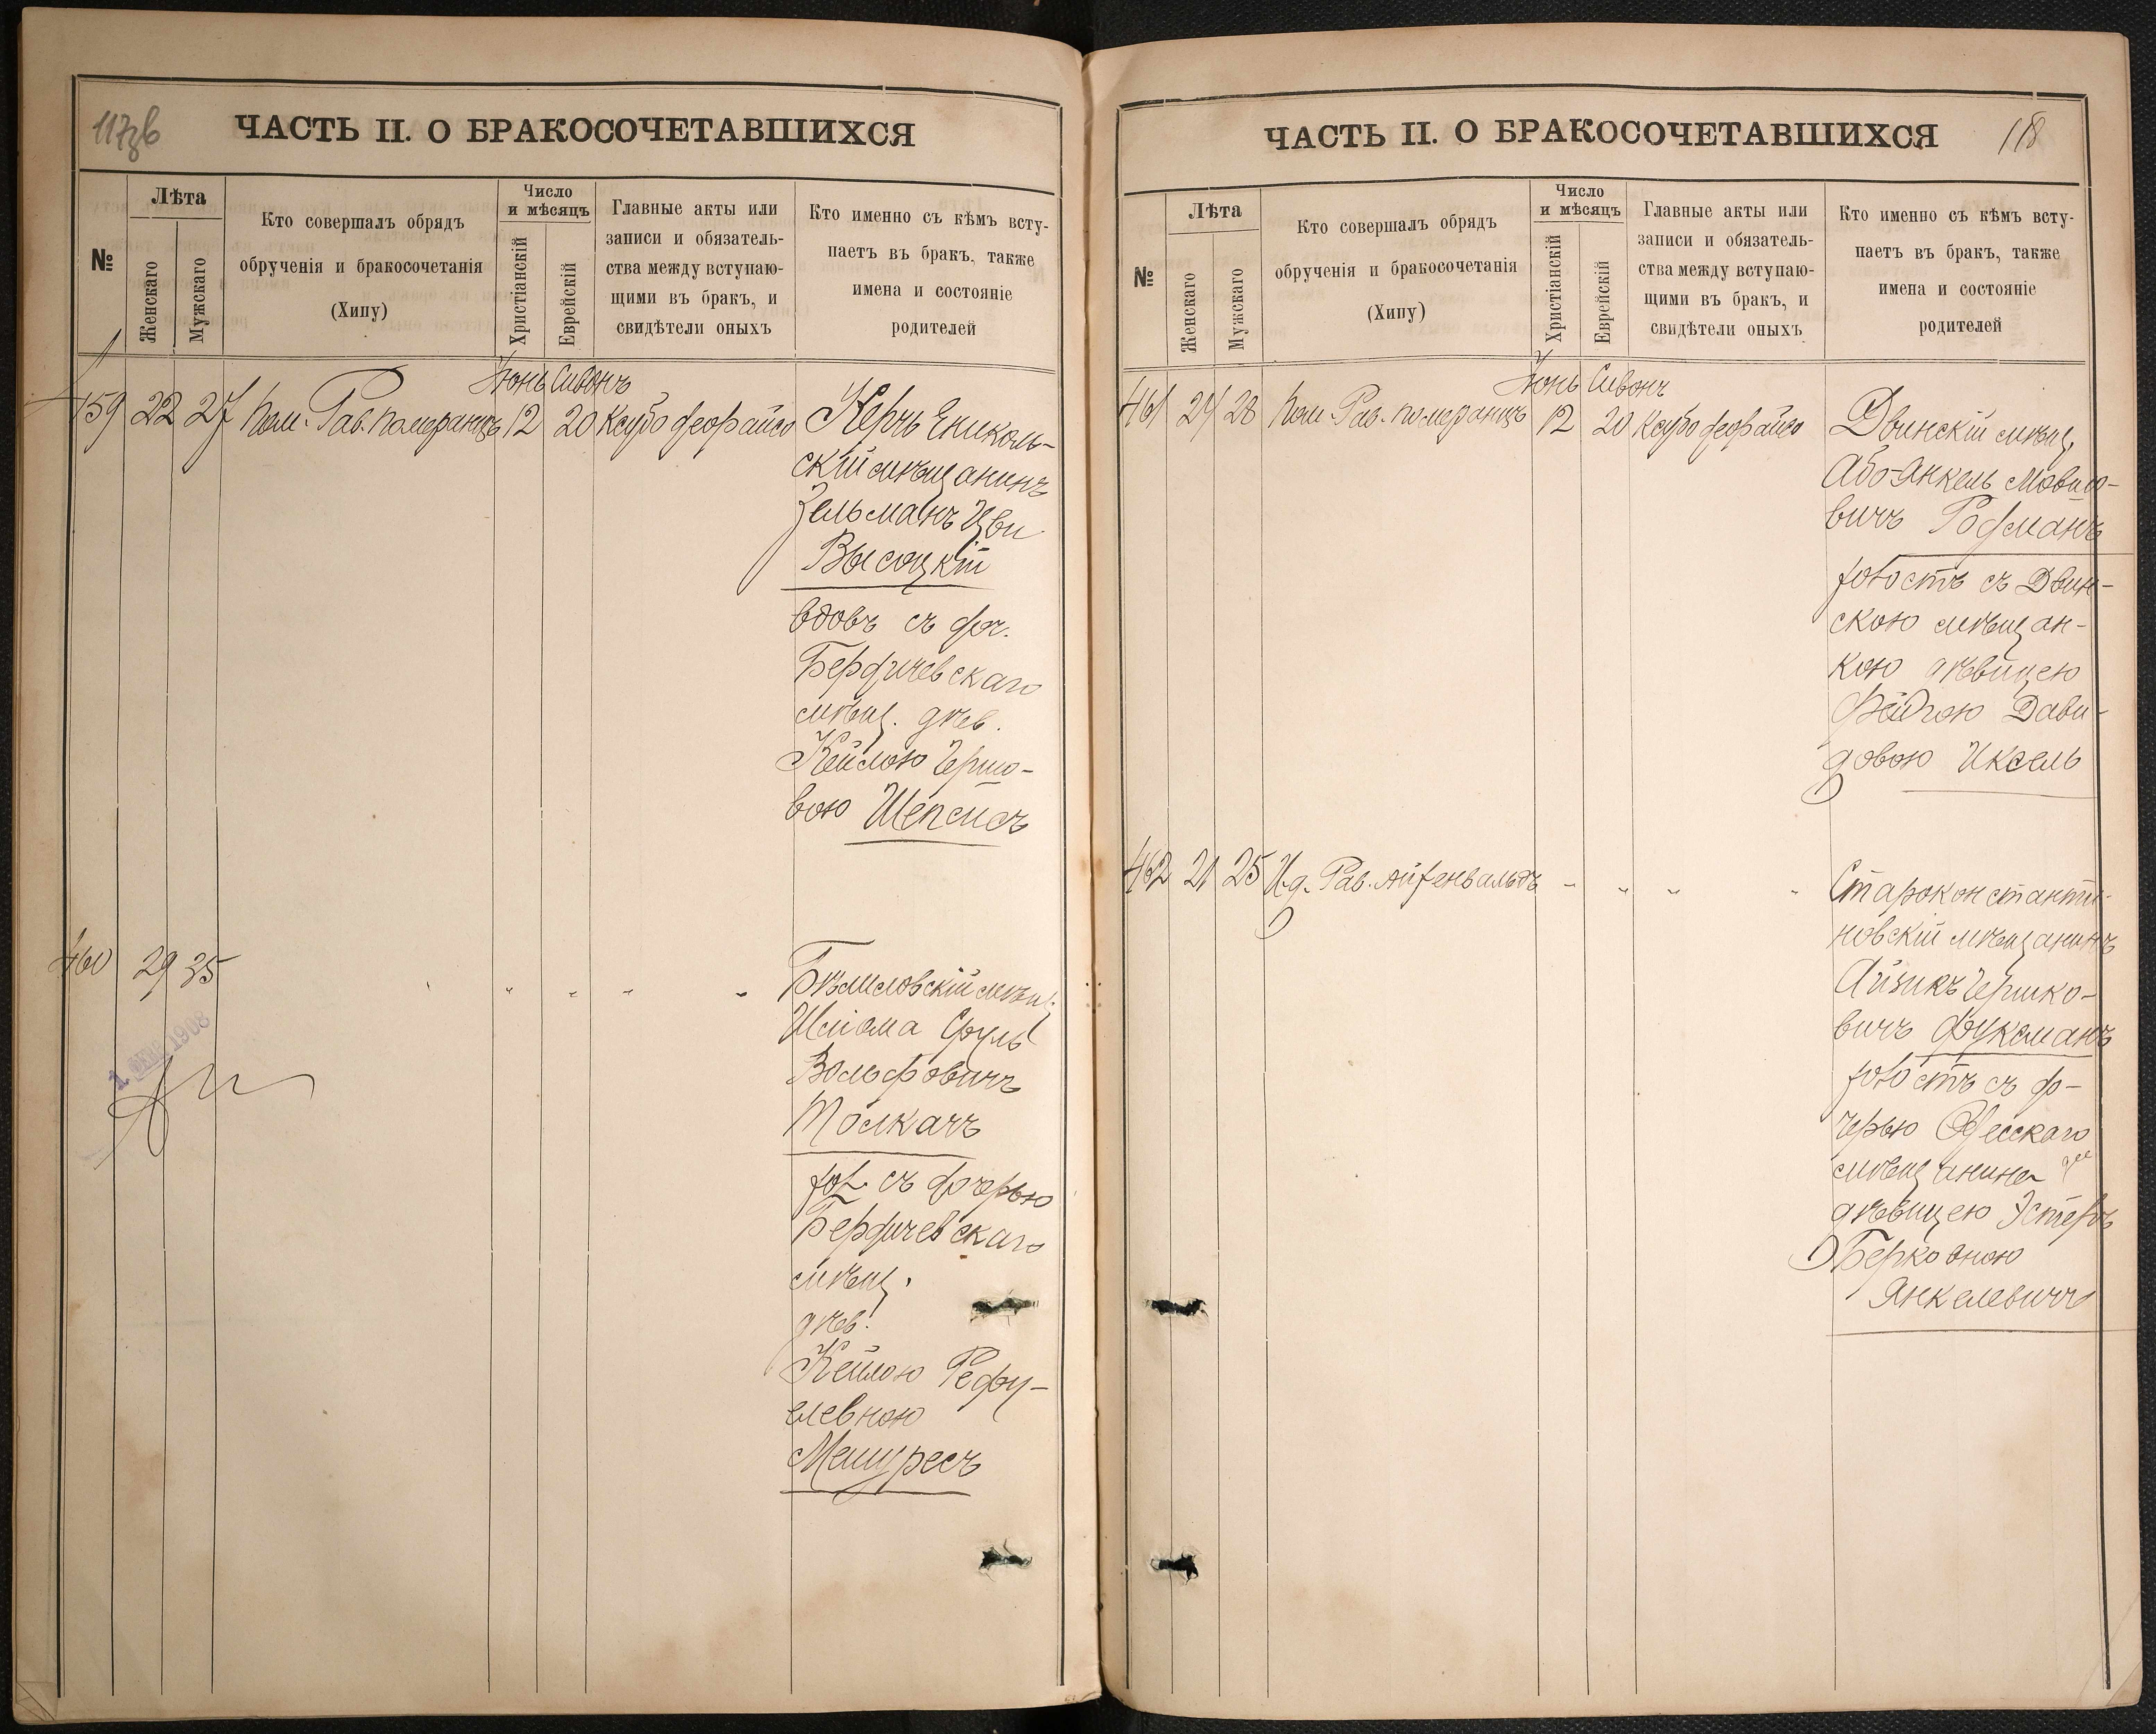 117об
ЧАСТЬ II. О БРАКОСОЧЕТАВШИХСЯ
№
Лѣта
Женскаго
Мужскаго
Кто совершалъ обрядъ
обрученія и бракосочетанія
(Хипу)
Число
и мѣсяцъ
Христіанскій
Еврейскій
Главные акты или
записи и обязатель-
ства между вступаю-
щими въ бракъ, и
свидѣтели оныхъ
Кто именно съ кѣмъ всту-
паетъ въ бракъ, также
имена и состояніе
родителей
Іюнь Сивонъ
459 22 27 Пом. Рав. Померанцъ 12 20 Ксубо
Керчь Ениколь-
скій мѣщанинъ
Зельманъ Цви
Высоцкій
вдовъ съ доч.
Бердичевскаго
мѣщ. дѣв.
Кейлою Герше-
вою Шепсисъ
460 29 35 " " " "
мѣщ.
Шліома Сруль
Вольфовичъ
Толкачъ
хол. съ дочерью
Бердичевскаго
мѣщ.
дѣв.
Кейлою Рефу-
левною
Машуресъ
1 ФЕВ 1908
118
ЧАСТЬ II. О БРАКОСОЧЕТАВШИХСЯ
№
Лѣта
Женскаго
Мужскаго
Кто совершалъ обрядъ
обрученія и бракосочетанія
(Хипу)
Число
и мѣсяцъ
Христіанскій
Еврейскій
Главные акты или
записи и обязатель-
ства между вступаю-
щими въ бракъ, и
свидѣтели оныхъ
Кто именно съ кѣмъ всту-
паетъ въ бракъ, также
имена и состояніе
родителей
Іюнь Сивонъ
461 24 28 Пом. Рав. Померанцъ 12 20 Ксубо
Двинскій мѣщ.
Або-Янкель Мовшо-
вичъ Гофманъ
холостъ съ Двин-
скою мѣщан-
кою дѣвицею
Фейгою Дави-
довою Иксель
462 21 25 И.д. Рав. Айзенвальдъ " " " "
Староконстанти-
новскій мѣщанинъ
Айзикъ Гершко-
вичъ Фуксманъ
холостъ съ до-
черью Одесскаго
мѣщанина
дѣвицею Эстеръ
Берковною
Янкелевичъ